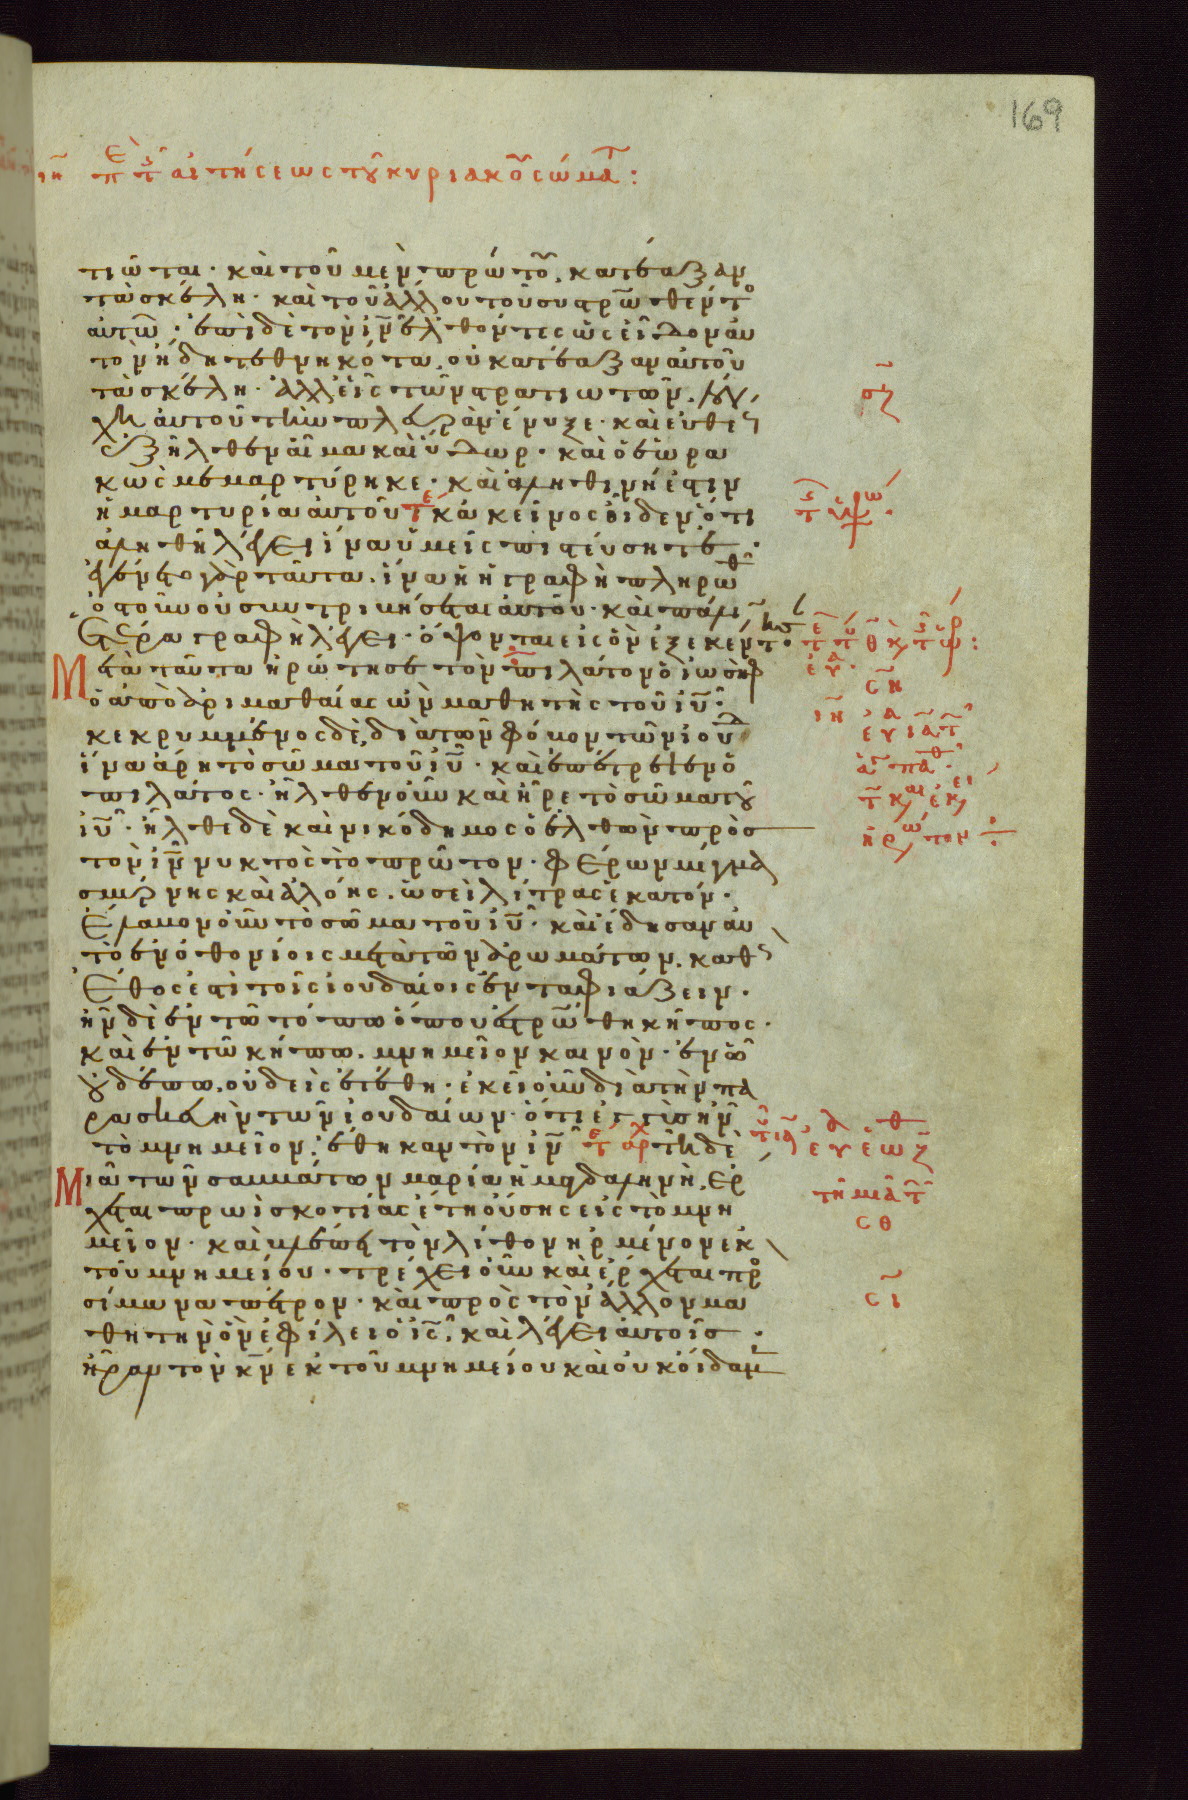 169
ιη περὶ τῆς αἰτήσεως τοῦ κυριακοῦ σώματ:
τιῶται· καὶ τοῦ μὲν πρώτου, κατέαξαν
τὰ σκέλη· καὶ τοῦ ἄλλου τοῦ συστρωθέντο
αὐτῶ· ἐπὶ δὲ τὸν ἰν ἐλθόντες ὡς εἶδον αὐ
τὸν ἤδη τεθνηκότα, οὐ κατέαξαν αὐτοῦ
τὰ σκέλη· ἀλλ εἷς τῶν στρατιωτῶν, λόγ
χη αὐτοῦ τὴν πλευρὰν ἔνυξε· καὶ εὐθε
ἐξῆλθεν αἷμα καὶ ὕδωρ· καὶ ὁ ἑωρα
κὼς μεμαρτύρηκε· καὶ ἀληθινή ἐστιν
ἡ μαρτυρία αὐτοῦ κἀκεῖνος οἶδεν ὅτι
ἀληθῆ λέγει ἵνα ὑμεῖς πιστεύσητε·
ἐγένετο γὰρ ταῦτα. ἵνα ἡ γραφὴ πληρωθῆ
ὀστοῦν οὐ συντριβήσεται αὐτοῦ· καὶ πάλιν
ἑτέρα γραφὴ λέγει· ὄψονται εἰς ὃν ἐξεκέντ·
Μετὰ ταῦτα ἠρώτησε τὸν πιλάτον ὁ ἰωσὴφ
ὁ ἀπὸ ἀριμαθαίας ὢν μαθητὴς τοῦ ἰυ·
κεκρυμμένος δὲ, διὰ τὸν φόβον τῶν ἰουδ
ἵνα ἄρη τὸ σῶμα τοῦ ἰυ· καὶ ἐπέτρεψεν ὁ
πιλάτος· ἦλθεν οὖν καὶ ἦρε τὸ σῶμα τοῦ
ἰυ· ἦλθε δὲ καὶ νικόδημος ὁ ἐλθὼν πρὸς
τὸν ἰν νυκτὸς τὸ πρῶτον· φέρων μίγμα
σμύρνης καὶ ἀλόης. ὡσεὶ λίτρας ἑκατόν·
ἔλαβον οὖν τὸ σῶμα τοῦ ἰυ· καὶ ἔδησαν αὐ
τὸ ἐν ὀθονίοις μετὰ τῶν ἀρωμάτων. καθ
ἔθος ἐστὶ τοῖς ἰουδαίοις ἐνταφιάζειν·
ἦν δὲ ἐν τῶ τόπω ὅπου ἐστρώθη κῆπος·
καὶ ἐν τῶ κήπω. μνημεῖον καινὸν· ἐν ὧ
οὐδέπω, οὐδεὶς ἐτέθη· ἐκεῖ οὖν διὰ τὴν πα
ρασκευὴν τῶν ἰουδαίων· ὅτι ἐγγὺς ἦν
τὸ μνημεῖον, ἔθηκαν τὸν ἰν τῆ δὲ
Μιᾶ τῶν σαββάτων μαρία ἡ μαγδαληνὴ, ἔρ
χεται πρωὶ σκοτίας ἔτι οὔσης εἰς τὸ μνη
μεῖον· καὶ βλέπει τὸν λίθον ἠρμένον ἐκ
τοῦ μνημείου· τρέχει οὖν καὶ ἔρχεται προ
σίμωνα πέτρον· καὶ πρὸς τὸν ἄλλον μα
θητὴν ὃν ἐφίλει ὁ ις, καὶ λέγει αὐτοῖς·
ἦραν τὸν κν ἐκ τοῦ μνημείου καὶ οὐκ οἴδαμ
ση
ιη
ἠρώτησ
τῆ μιᾶ τ
σθ
σι